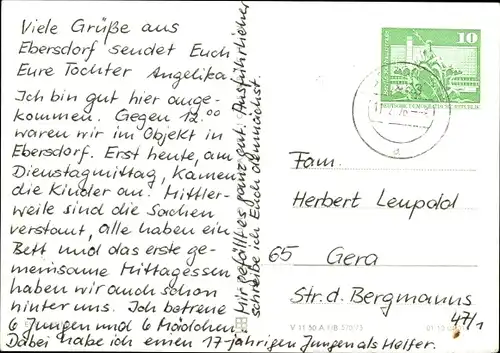 Viele Grüße aus
Ebersdorf sendet Euch
Eure Tochter Angelika
Ich bin gut hier ange-
kommen. Gegen 12.00
waren wir im Objekt in
Ebersdorf. Erst heute, am
Dienstagmittag, kamen
die Kinder an. Mittler-
weile sind die Sachen
verstaut, alle haben ein
Bett und das erste ge-
meinsame Mittagessen
haben wir auch schon
hinter uns. Ich betreue
6 Jungen und 6 Mädchen.
Dabei habe ich einen 17-jährigen Jungen als Helfer.
Mir gefällt es ganz gut. Ausführlicher
schreibe ich Euch demnächst.
10
DEUTSCHE DEMOKRATISCHE REPUBLIK
Fam.
Herbert Leupold
65 Gera
Str. d. Bergmanns
47/1
V 11 50 A 1/B